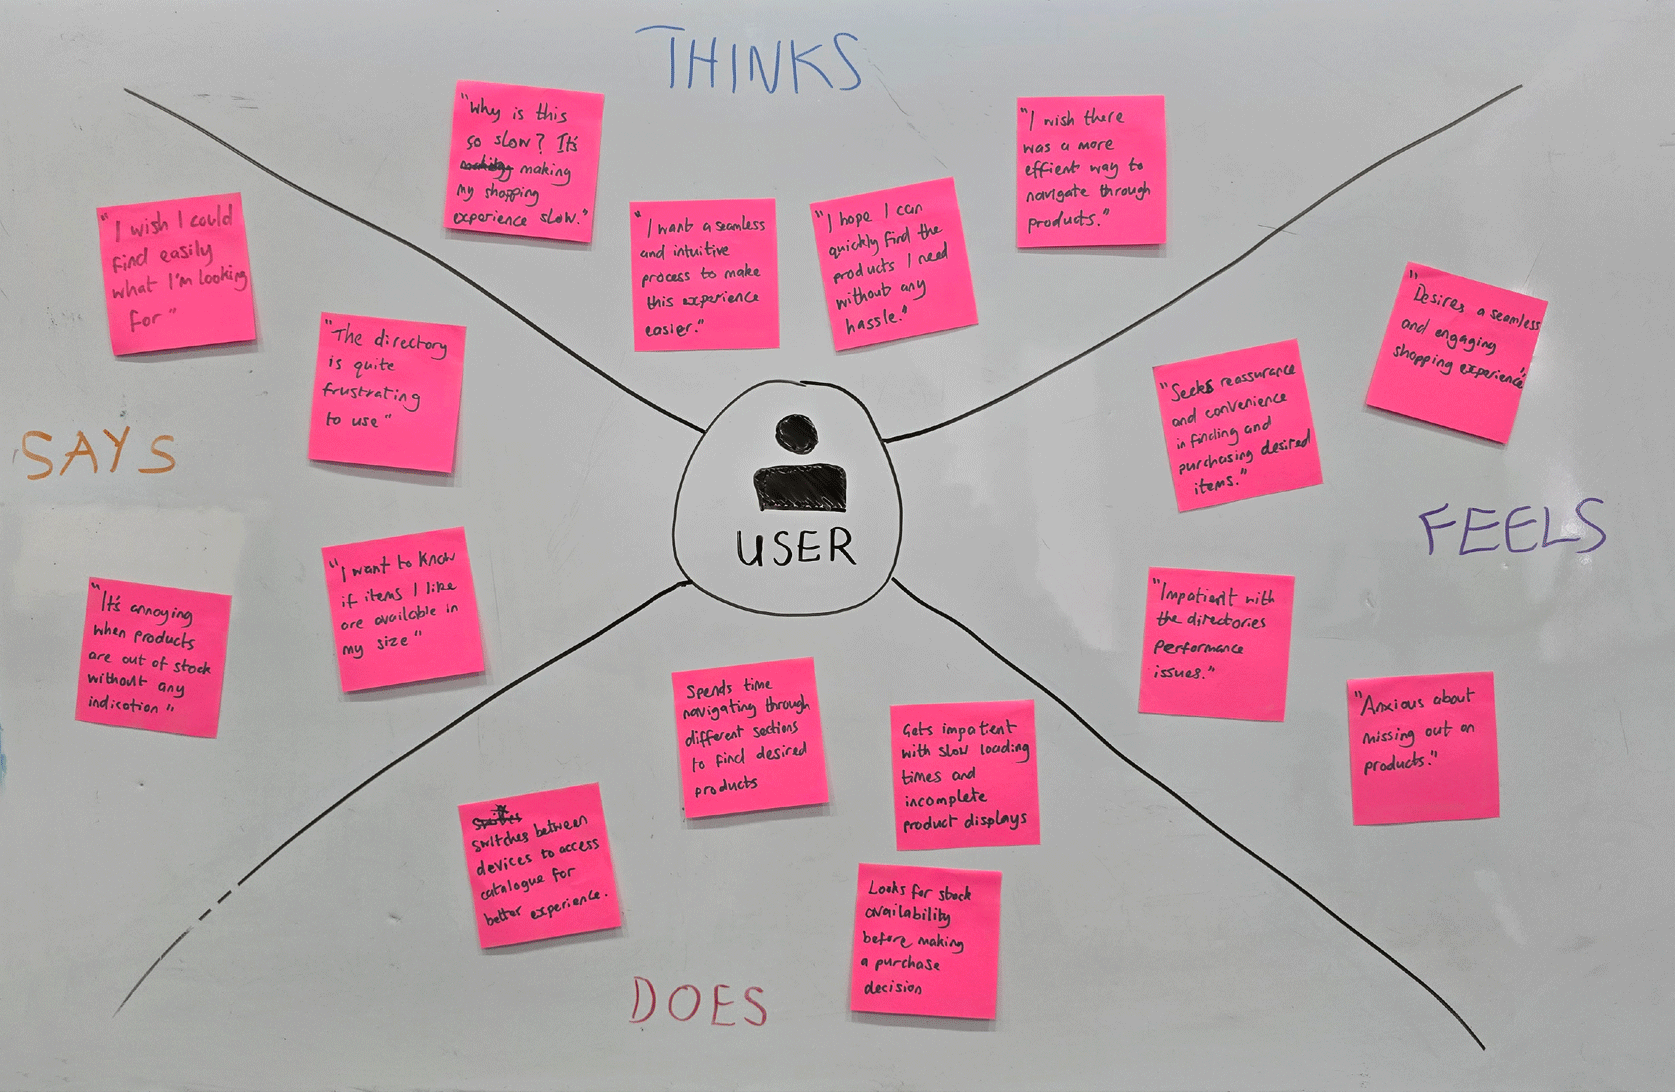 THINKS
"Why is this
so slow? It's
making
my shopping
experience slow."
"I want a seamless
and intuitive
process to make
this experience
easier."
"I hope I can
quickly find the
products I need
without any
hassle."
"I wish there
was a more
effient way to
navigate through
products."
SAYS
"I wish I could
find easily
what I'm looking
for"
"The directory
is quite
frustrating
to use"
"I want to know
if items I like
are available in
my size"
"It's annoying
when products
are out of stock
without any
indication"
USER
FEELS
"Desires a seamless
and engaging
shopping experience"
"Seeks reassurance
and convenience
in finding and
purchasing desired
items."
"Impatient with
the directories
performance
issues."
"Anxious about
missing out on
products."
DOES
Spends time
navigating through
different sections
to find desired
products
Gets impatient
with slow loading
times and
incomplete
product displays
switches between
devices to access
catalogue for
better experience.
Looks for stock
availability
before making
a purchase
decision